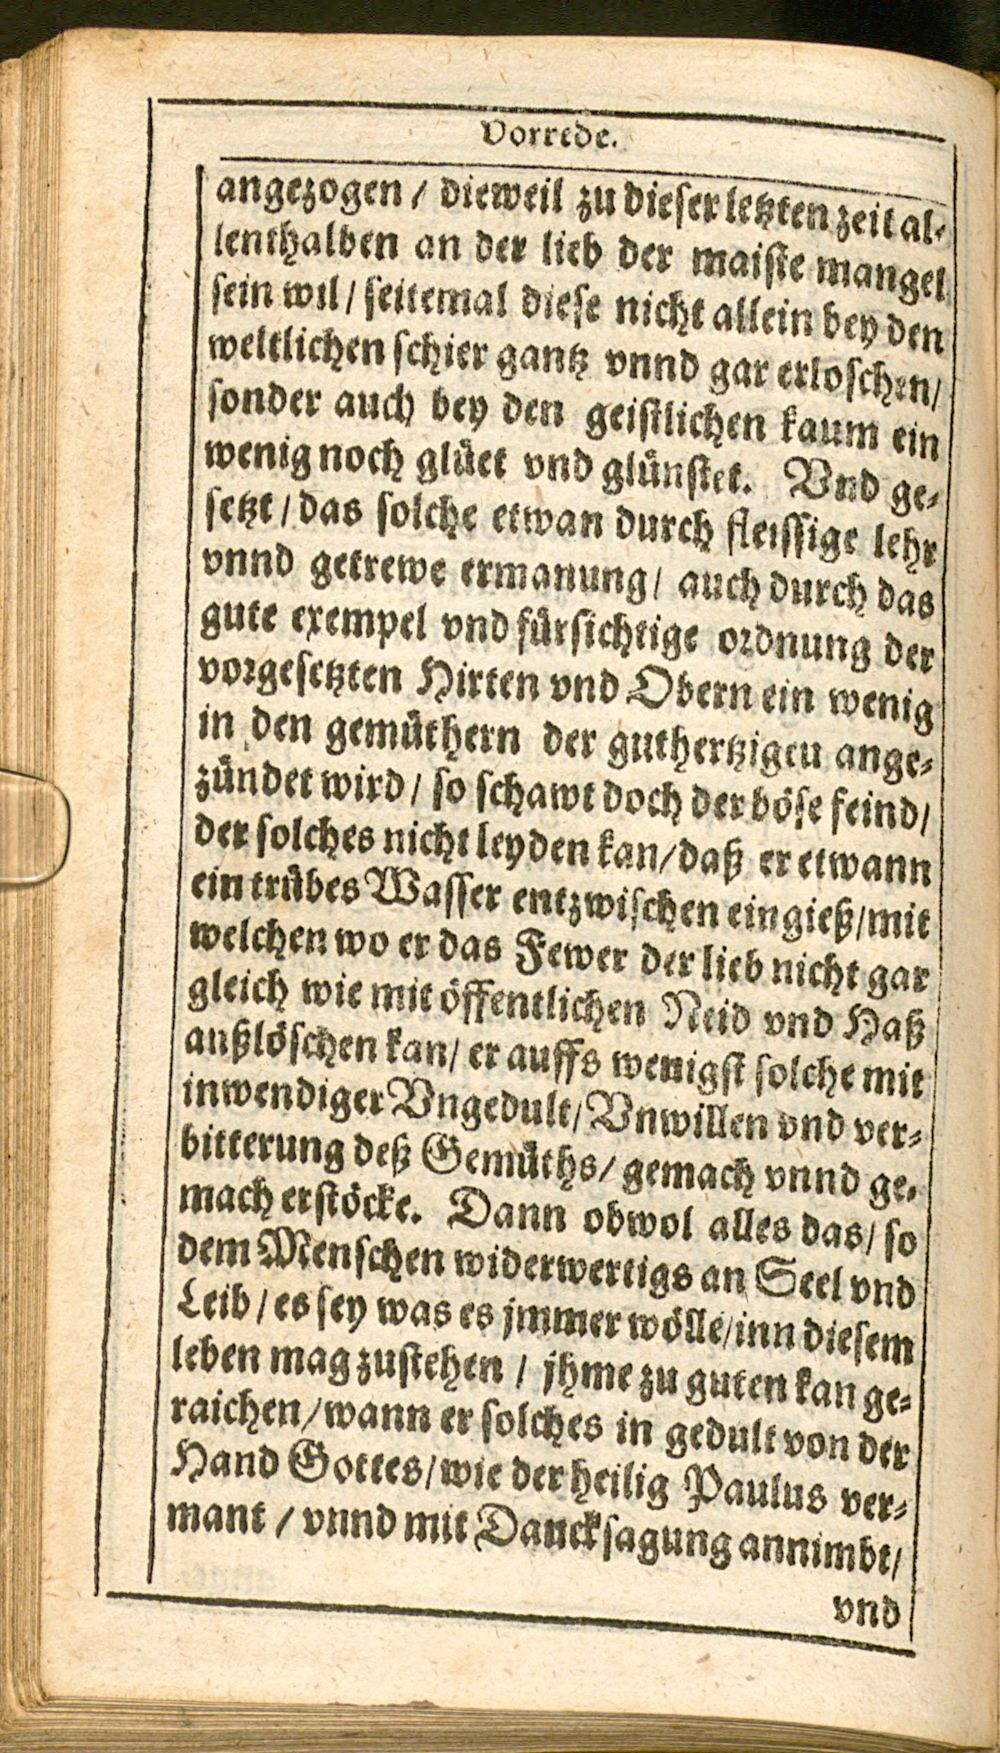 Vorrede.
angezogen / dieweil zu dieser letzten zeit al-
lenthalben an der lieb der maiste mangel
sein wil / seitemal diese nicht allein bey den
weltlichen schier gantz vnnd gar erloschen /
sonder auch bey den geistlichen kaum ein
wenig noch glüet vnd glünstet. Vnd ge-
setzt / das solche etwan durch fleissige lehr
vnnd getrewe ermanung / auch durch das
gute exempel vnd fürsichtige ordnung der
vorgesetzten Hirten vnd Obern ein wenig
in den gemüthern der guthertzigeu ange-
zündet wird / so schawt doch der böse feind /
der solches nicht leyden kan / daß er etwann
ein trübes Wasser entzwischen eingieß / mit
welchen wo er das Fewer der lieb nicht gar
gleich wie mit öffentlichen Neid vnd Haß
außlöschen kan / er auffs wenigst solche mit
inwendiger Vngedult / Vnwillen vnd ver-
bitterung deß Gemüths / gemach vnnd ge-
mach erstöcke. Dann obwol alles das / so
dem Menschen widerwertigs an Seel vnd
Leib / es sey was es jmmer wölle / inn diesem
leben mag zustehen / jhme zu guten kan ge-
raichen / wann er solches in gedult von der
Hand Gottes / wie der heilig Paulus ver-
mant / vnnd mit Dancksagung annimbt /
vnd